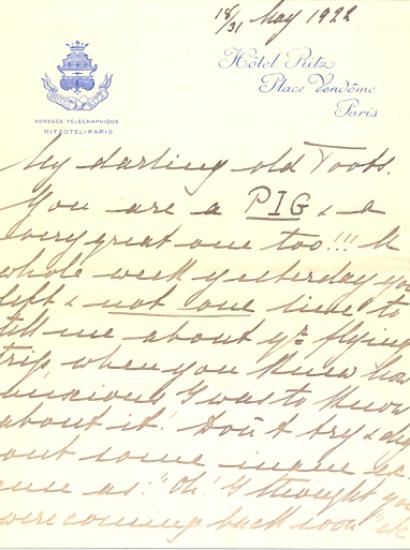 18/31 May 1922
Hôtel Ritz
Place Vendôme
Paris
ADRESSE TÉLÉGRAPHIQUE
RITZOTEL-PARIS
My darling old Toots.
You are a PIG & a
very great one too!!! A
whole week yesterday you
left & not one line to
tell me about yr flying
trip, when you knew how
anxious I was to know
about it! Don't try & dig
out some inane ex-
cuse as: "Oh! I thought you
were coming back soon"